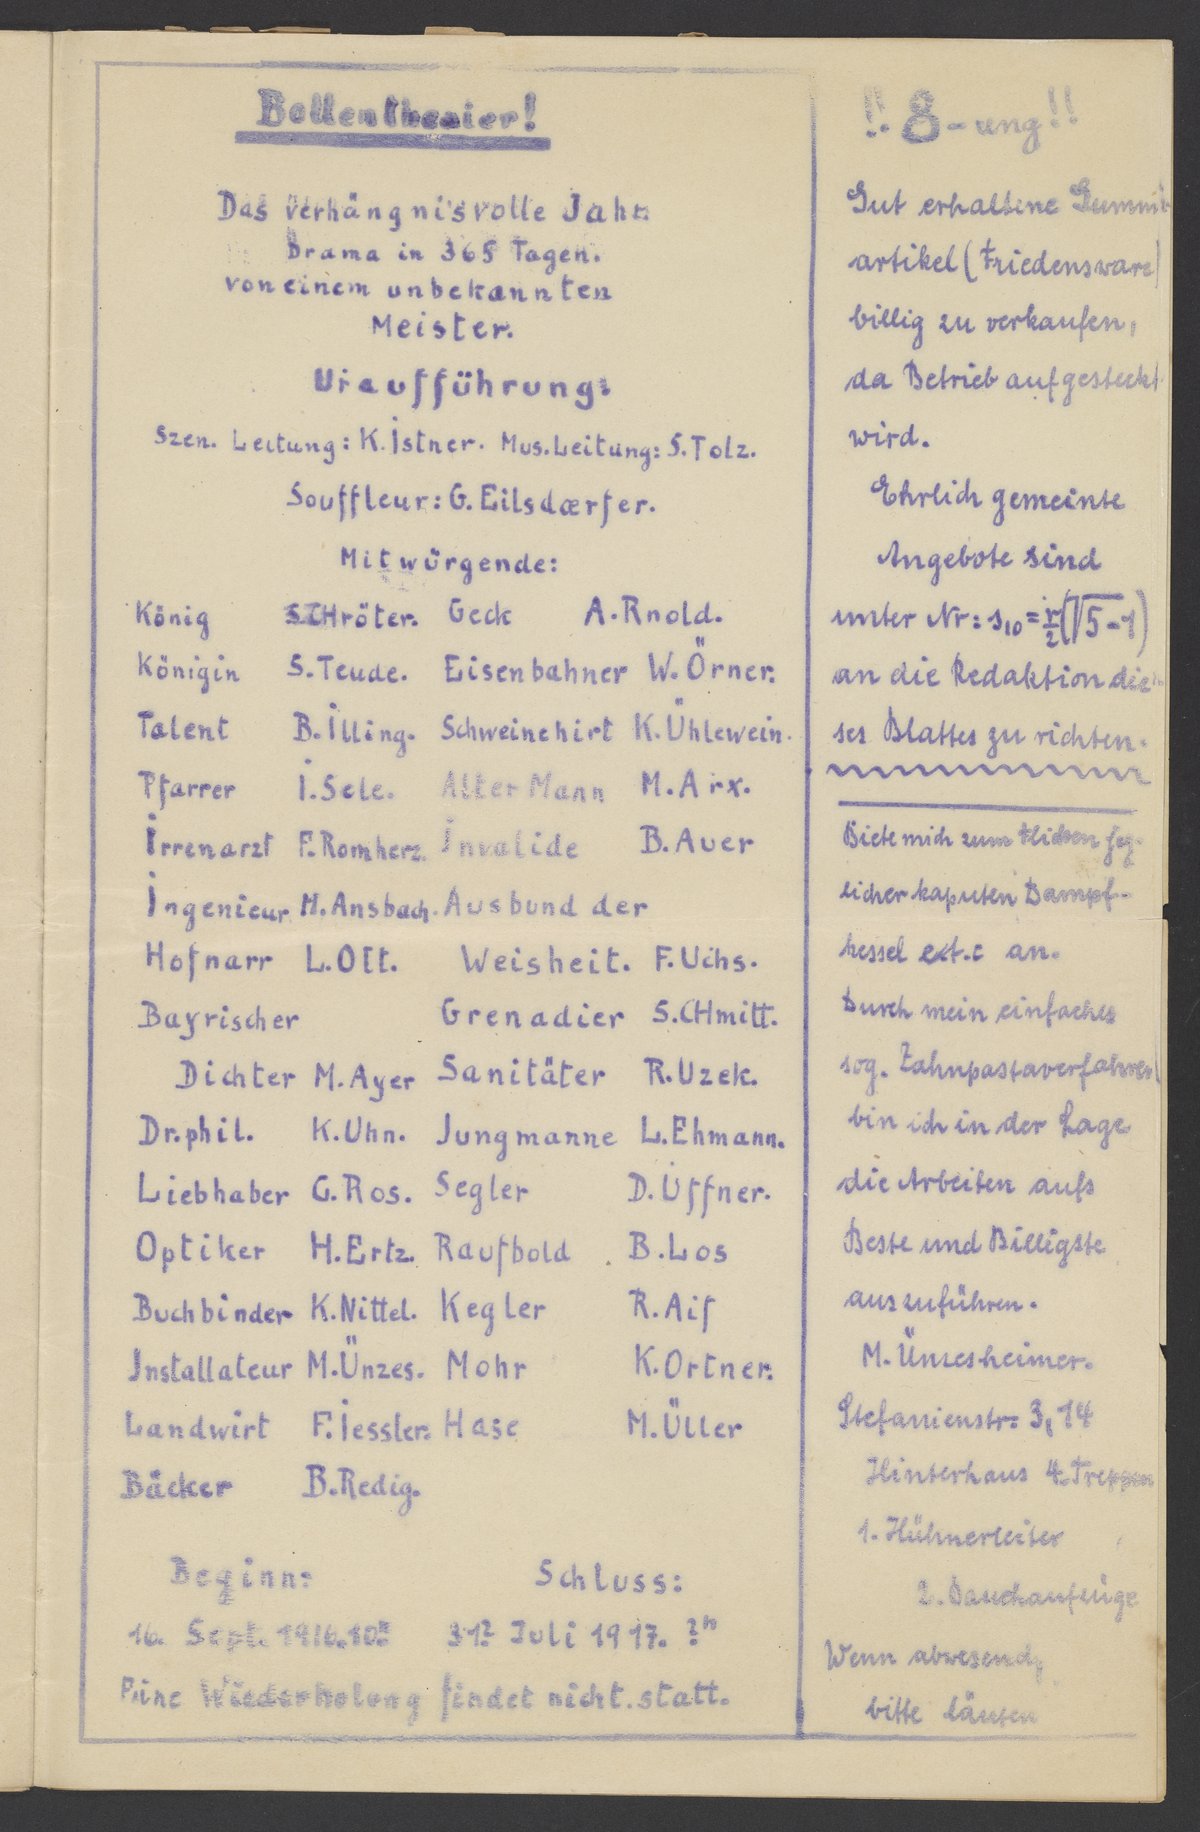 Bollentheater!
Das verhängnisvolle Jahr.
Drama in 365 Tagen.
von einem unbekannten
Meister.
Uraufführung:
Szen. Leitung: K. Istner. Mus. Leitung: S. Tolz.
Souffleur: G. Eilsdœrfer.
Mitwürgende:
König S. CHröter. Geck A. Rnold.
Königin S. Teude. Eisenbahner W. Örner.
Talent B. Illing. Schweinehirt K. Ühlewein.
Pfarrer I. Sele. Alter Mann M. Arx.
Irrenarzt F. Romherz. Invalide B. Auer
Ingenieur M. Ansbach. Ausbund der
Hofnarr L. Ott. Weisheit. F. Uchs.
Bayrischer Grenadier S. CHmitt.
Dichter M. Ayer Sanitäter R. Uzek.
Dr. phil. K. Uhn. Jungmanne L. Ehmann.
Liebhaber G. Ros. Segler D. Üffner.
Optiker H. Ertz. Raufbold B. Los
Buchbinder K. Nittel. Kegler R. Aif
Installateur M. Ünzes. Mohr K. Ortner.
Landwirt F. Iessler. Hase M. Üller
Bäcker B. Redig.
Beginn: Schluss:
16. Sept. 1916. 31? Juli 1917.
Eine Wiederholung findet nicht statt.
!! 8 - ung !!
Gut erhaltene Gummi
artikel (Friedensware)
billig zu verkaufen,
da Betrieb aufgesteckt
wird.
Ehrlich gemeinte
Angebote sind
unter Nr: s10 = r/2 (√5 - 1)
an die Redaktion die-
ses Blattes zu richten.
Biete mich zum Flicken jeg-
licher kaputen Dampf-
kessel ext.c an.
Durch mein einfaches
sog. Zahnpastaverfahren
bin ich in der Lage
die Arbeiten aufs
Beste und Billigste
auszuführen.
M. Ünzesheimer.
Stefanienstr. 3, 14
Hinterhaus 4 Treppen
1. Hühnerleiter
2.
Wenn abwesend,
bitte läuten